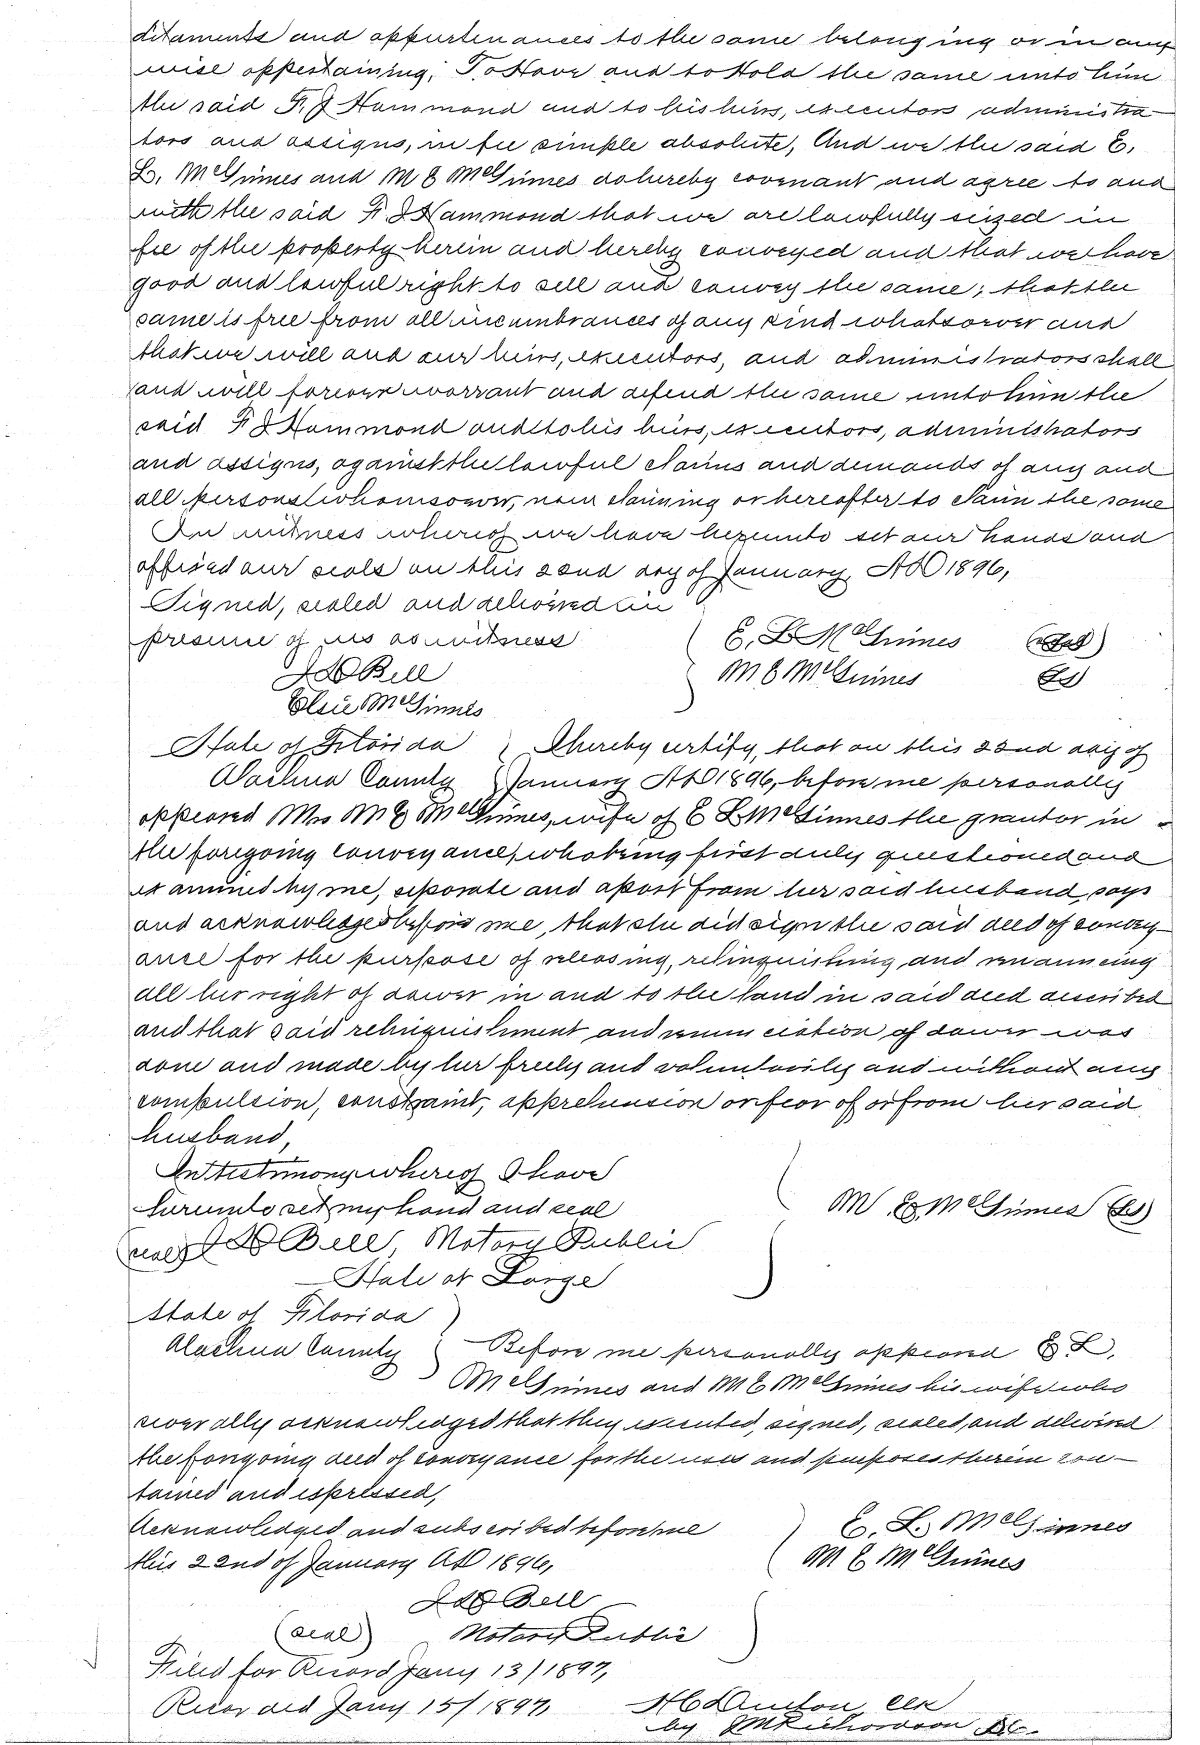 ditaments and appurtenances to the same belonging or in any
wise appertaining; To Have and to Hold the same unto him
the said F. J Hammond and to his heirs, executors administra-
tors and assigns, in fee simple absolute, And we the said E.
L. McGinnes and M E McGinnes do hereby covenant and agree to and
with the said F. J Hammond that we are lawfully seized in
fee of the property herein and hereby conveyed and that we have
good and lawful right to sell and convey the same; that the
same is free from all incumbrances of any kind whatsoever and
that we will and our heirs, executors, and administrators shall
and will forever warrant and defend the same unto him the
said F J Hammond and to his heirs, executors, administrators
and assigns, against the lawful claims and demands of any and
all persons whomsoever, now claiming or hereafter to claim the same
In witness whereof we have hereunto set our hands and
affixed our seals on this 22nd day of January, AD 1896,
Signed, sealed and delivered in
presence of us as witness E. L McGinnes (seal)
Bell M E McGinnes (LS)
Elsie McGinnes
State of Florida I hereby certify, that on this 22nd day of
Alachua County January AD 1896, before me personally
appeared Mrs M E McGinnes, wife of E L McGinnes the grantor in
the foregoing conveyance, who being first duly questioned and
examined by me, separate and apart from her said husband, says
and acknowledges before me, that she did sign the said deed of convey-
ance for the purpose of releasing, relinquishing and renouncing
all her right of dower in and to the land in said deed described
and that said relinquishment and renunciation of dower was
done and made by her freely and voluntarily and without any
compulsion, constraint, apprehension or fear of or from her said
husband,
In testimony whereof I have
hereunto set my hand and seal M E McGinnes (LS)
(seal) Bell, Notary Public
State at Large
State of Florida
Alachua County Before me personally appeared E. L.
McGinnes and M E McGinnes his wife who
severally acknowledged that they executed, signed, sealed, and delivered
the foregoing deed of conveyance for the uses and purposes therein con-
tained and expressed,
Acknowledged and subscribed before me E. L. McGinnes
this 22nd of January AD 1896, M E McGinnes
Bell
(seal) Notary Public
Filed for Record Jany 13/1897,
Recorded Jany 15/1897, Clk
by Richardson D.C.